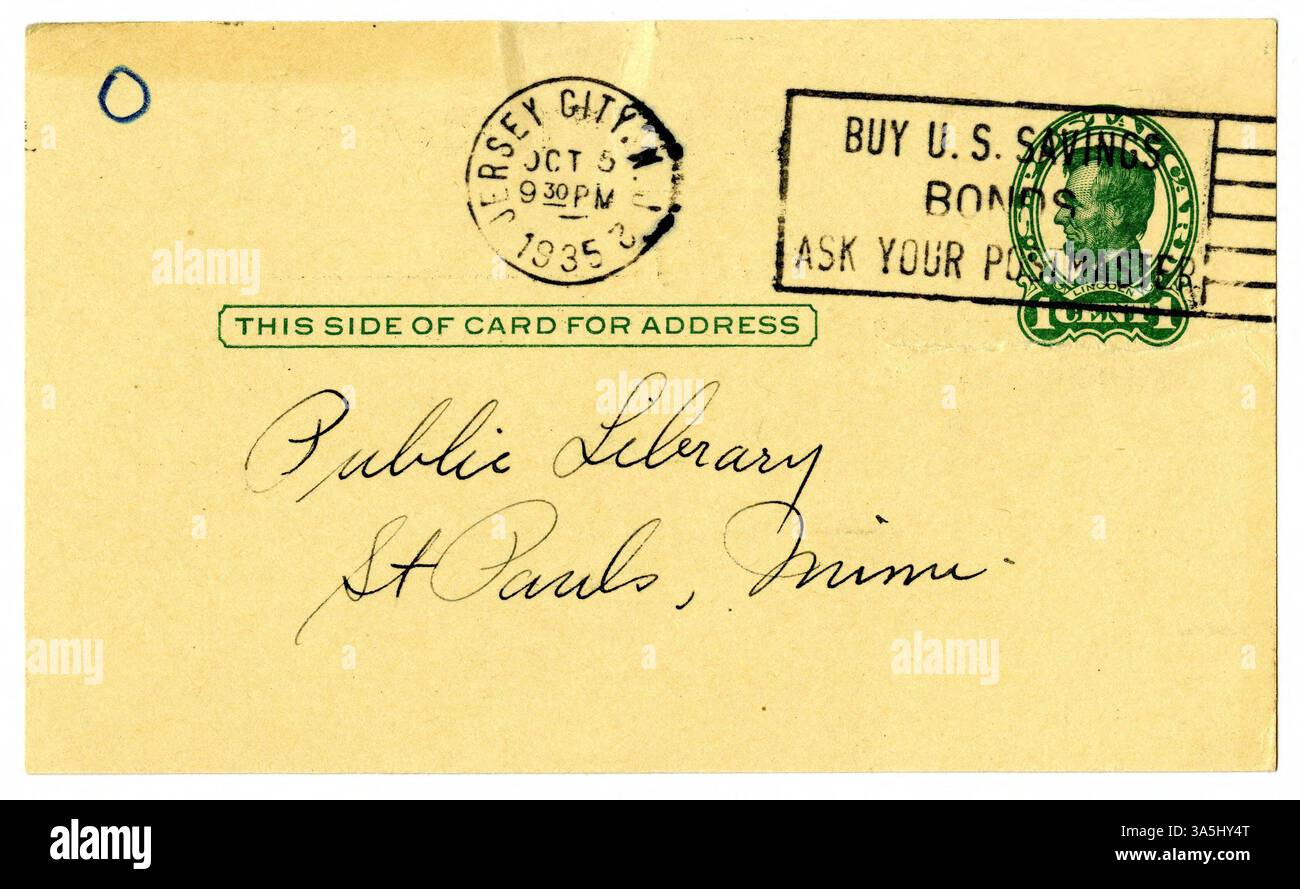 JERSEY CITY, N.J.
OCT 5
9 30 PM
1935
2
BUY U. S. SAVINGS
BONDS
ASK YOUR POSTMASTER
LINCOLN
1 CENT 1
THIS SIDE OF CARD FOR ADDRESS
Public Library
St Pauls, Minn.
alamy
alamy
Image ID: 3A5HY4T
www.alamy.com